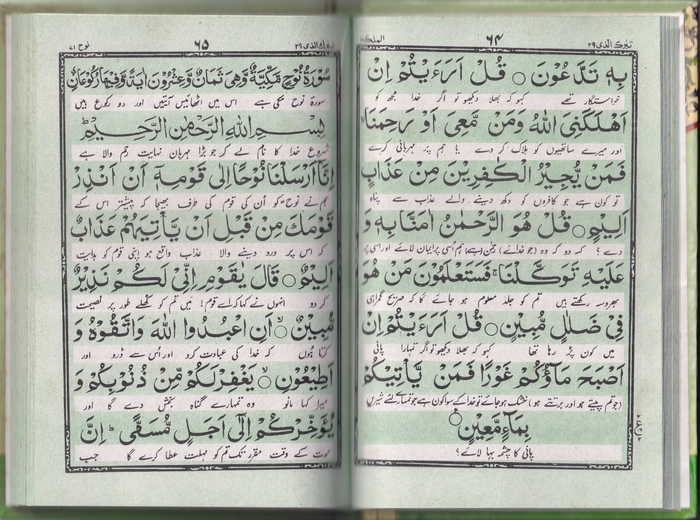 تبٰرك الذى ٢٩
٦٤
الملك ٦٧
بِهٖ تَدَّعُوْنَ ○ قُلْ اَرَءَيْتُمْ اِنْ
خواستگار تھے کہو کہ بھلا دیکھو تو اگر خدا مجھ کو
اَهْلَكَنِىَ اللّٰهُ وَمَنْ مَّعِىَ اَوْ رَحِمَنَا
اور میرے ساتھیوں کو ہلاک کر دے یا ہم پر مہربانی کرے
فَمَنْ يُّجِيْرُ الْكٰفِرِيْنَ مِنْ عَذَابٍ
تو کون ہے جو کافروں کو دکھ دینے والے عذاب سے پناہ
اَلِيْمٍ ○ قُلْ هُوَ الرَّحْمٰنُ اٰمَنَّا بِهٖ وَ
دے؟ کہہ دو کہ وہ (جو خدائے) رحمٰن (ہے) ہم اسی پر ایمان لائے اور اسی پر
عَلَيْهِ تَوَكَّلْنَا ۚ فَسَتَعْلَمُوْنَ مَنْ هُوَ
بھروسہ رکھتے ہیں تم کو جلد معلوم ہو جائے گا کہ صریح گمراہی
فِىْ ضَلٰلٍ مُّبِيْنٍ ○ قُلْ اَرَءَيْتُمْ اِنْ
میں کون پڑ رہا تھا کہو کہ بھلا دیکھو تو اگر تمہارا پانی
اَصْبَحَ مَآؤُكُمْ غَوْرًا فَمَنْ يَّاْتِيْكُمْ
(جو تم پیتے ہو اور برتتے ہو) خشک ہو جائے تو خدا کے سوا کون ہے جو تمہارے لئے شیریں
بِمَآءٍ مَّعِيْنٍ
پانی کا چشمہ بہا لائے؟
تبٰرك الذى ٢٩
٦٥
نوح ٧١
سُوْرَةُ نُوْحٍ مَّكِّيَّةٌ وَّهِىَ ثَمَانٌ وَّعِشْرُوْنَ اٰيَةً وَّفِيْهَا رُكُوْعَانِ
سورۃ نوح مکی ہے اس میں اٹھائیس آیتیں اور دو رکوع ہیں
بِسْمِ اللّٰهِ الرَّحْمٰنِ الرَّحِيْمِ
شروع خدا کا نام لے کر جو بڑا مہربان نہایت رحم والا ہے
اِنَّآ اَرْسَلْنَا نُوْحًا اِلٰى قَوْمِهٖٓ اَنْ اَنْذِرْ
ہم نے نوح کو ان کی قوم کی طرف بھیجا کہ پیشتر اس کے
قَوْمَكَ مِنْ قَبْلِ اَنْ يَّاْتِيَهُمْ عَذَابٌ
کہ اس پر درد دینے والا عذاب واقع ہو اپنی قوم کو ہدایت
اَلِيْمٌ ○ قَالَ يٰقَوْمِ اِنِّىْ لَكُمْ نَذِيْرٌ
کر دو انہوں نے کہا کہ اے قوم! میں تم کو کھلے طور پر نصیحت
مُّبِيْنٌ ○ اَنِ اعْبُدُوا اللّٰهَ وَاتَّقُوْهُ وَ
کرتا ہوں کہ خدا کی عبادت کرو اور اس سے ڈرو اور
اَطِيْعُوْنِ ○ يَغْفِرْ لَكُمْ مِّنْ ذُنُوْبِكُمْ وَ
میرا کہا مانو وہ تمہارے گناہ بخش دے گا اور
يُؤَخِّرْكُمْ اِلٰٓى اَجَلٍ مُّسَمًّى ؕ اِنَّ
موت کے وقت مقرر تک تم کو مہلت عطا کرے گا جب